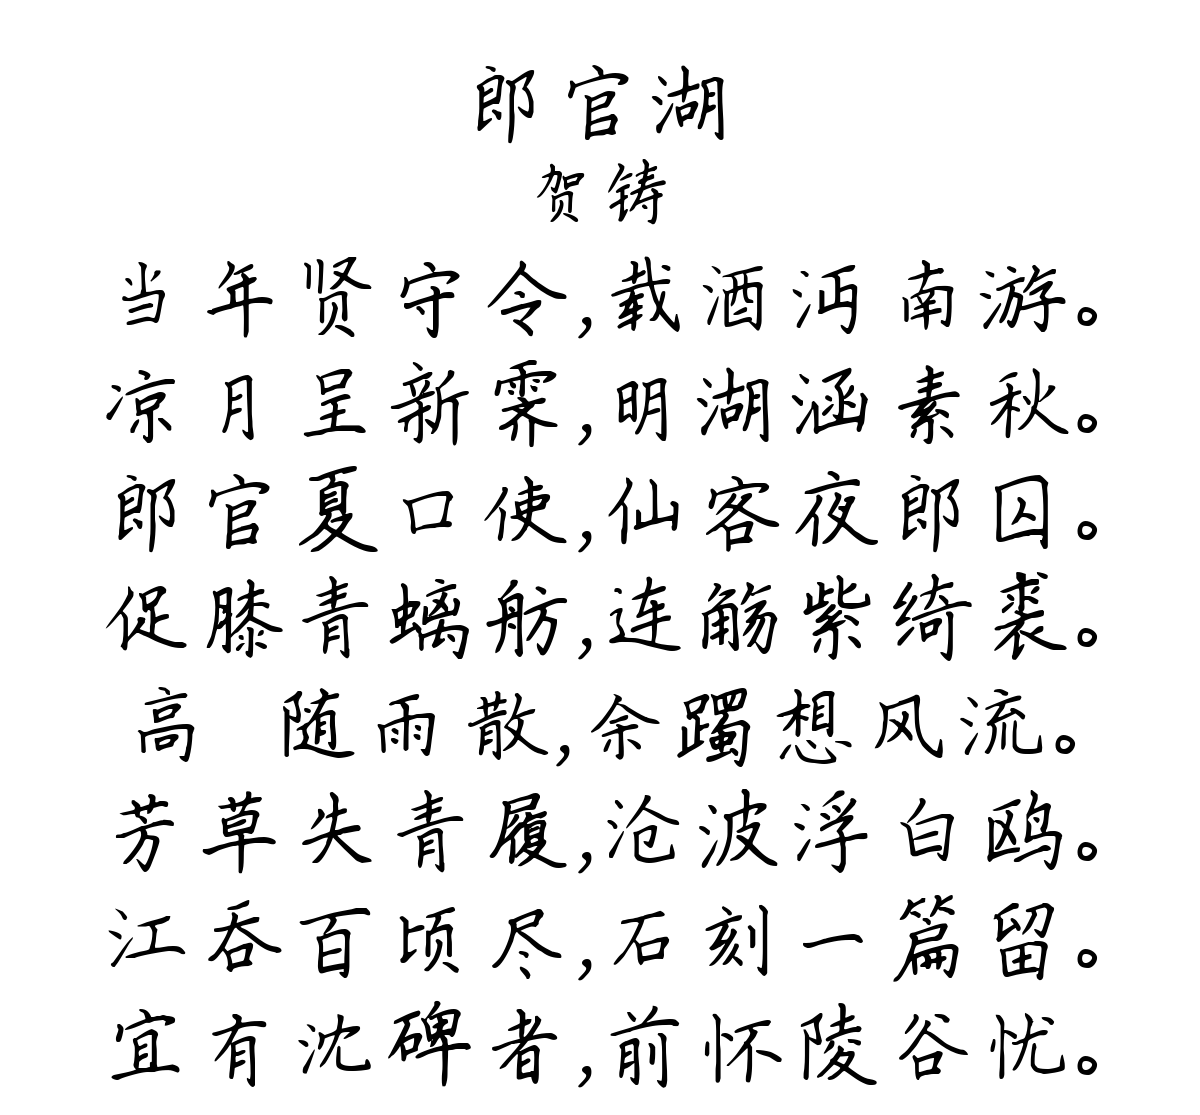 郎官湖
贺铸
当年贤守令,载酒沔南游。
凉月呈新霁,明湖涵素秋。
郎官夏口使,仙客夜郎囚。
促膝青螭舫,连觞紫绮裘。
高 随雨散,余躅想风流。
芳草失青履,沧波浮白鸥。
江吞百顷尽,石刻一篇留。
宜有沈碑者,前怀陵谷忧。